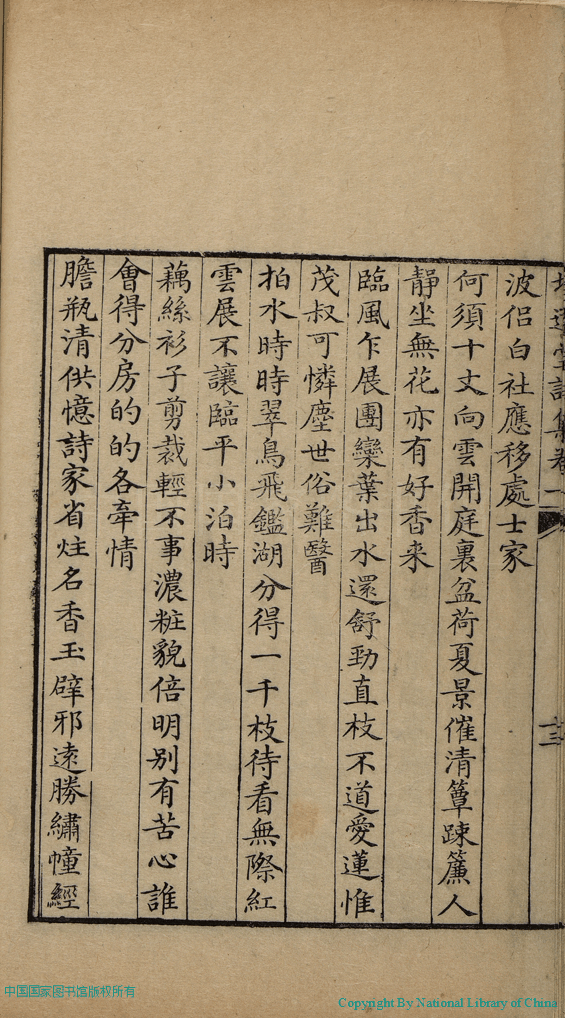 詩集卷一
十三
波侶白社應移處士家
何須十丈向雲開庭裏盆荷夏景催清簟疎簾人
靜坐無花亦有好香来
臨風乍展團欒葉出水還舒勁直枝不道愛蓮惟
茂叔可憐塵世俗難醫
拍水時時翠鳥飛鑑湖分得一千枝待看無際紅
雲展不讓臨平小泊時
藕絲衫子剪裁輕不事濃粧貌倍明别有苦心誰
會得分房的的各牽情
膽瓶清供憶詩家省炷名香玉辟邪遠勝繡幢經
中国国家图书馆版权所有
Copyright By National Library of China